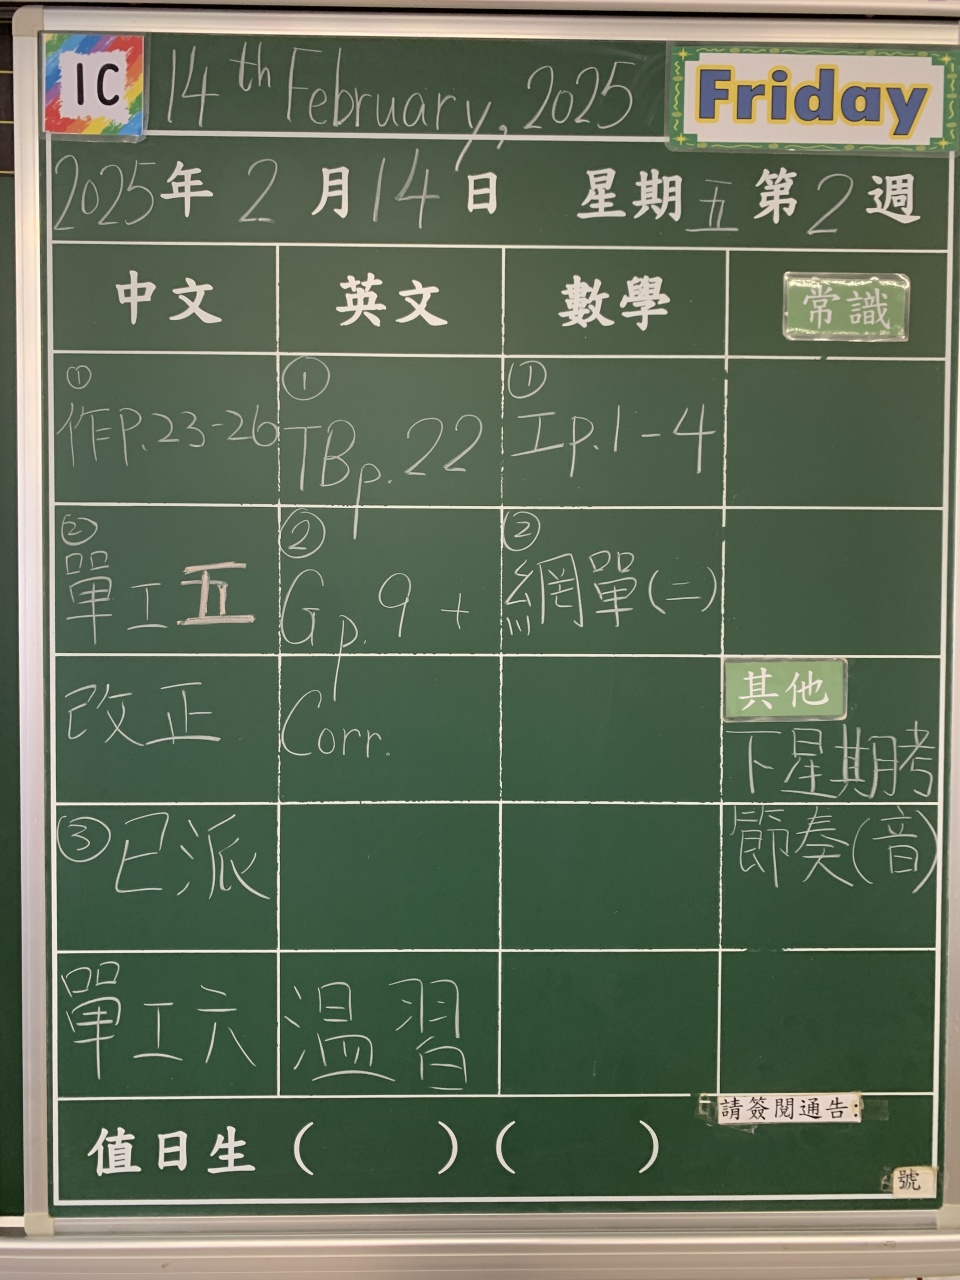 1C 14th February, 2025 Friday
2025年2月14日 星期五第2週
中文 英文 數學 常識
① ① ①
作P.23-26 TB p. 22 工p.1-4
② ② ②
單工五 G p. 9 + 網單(二)
改正 Corr. 其他
下星期考
③已派 節奏(音)
單工六 溫習
請簽閱通告:
值日生( )( )
號